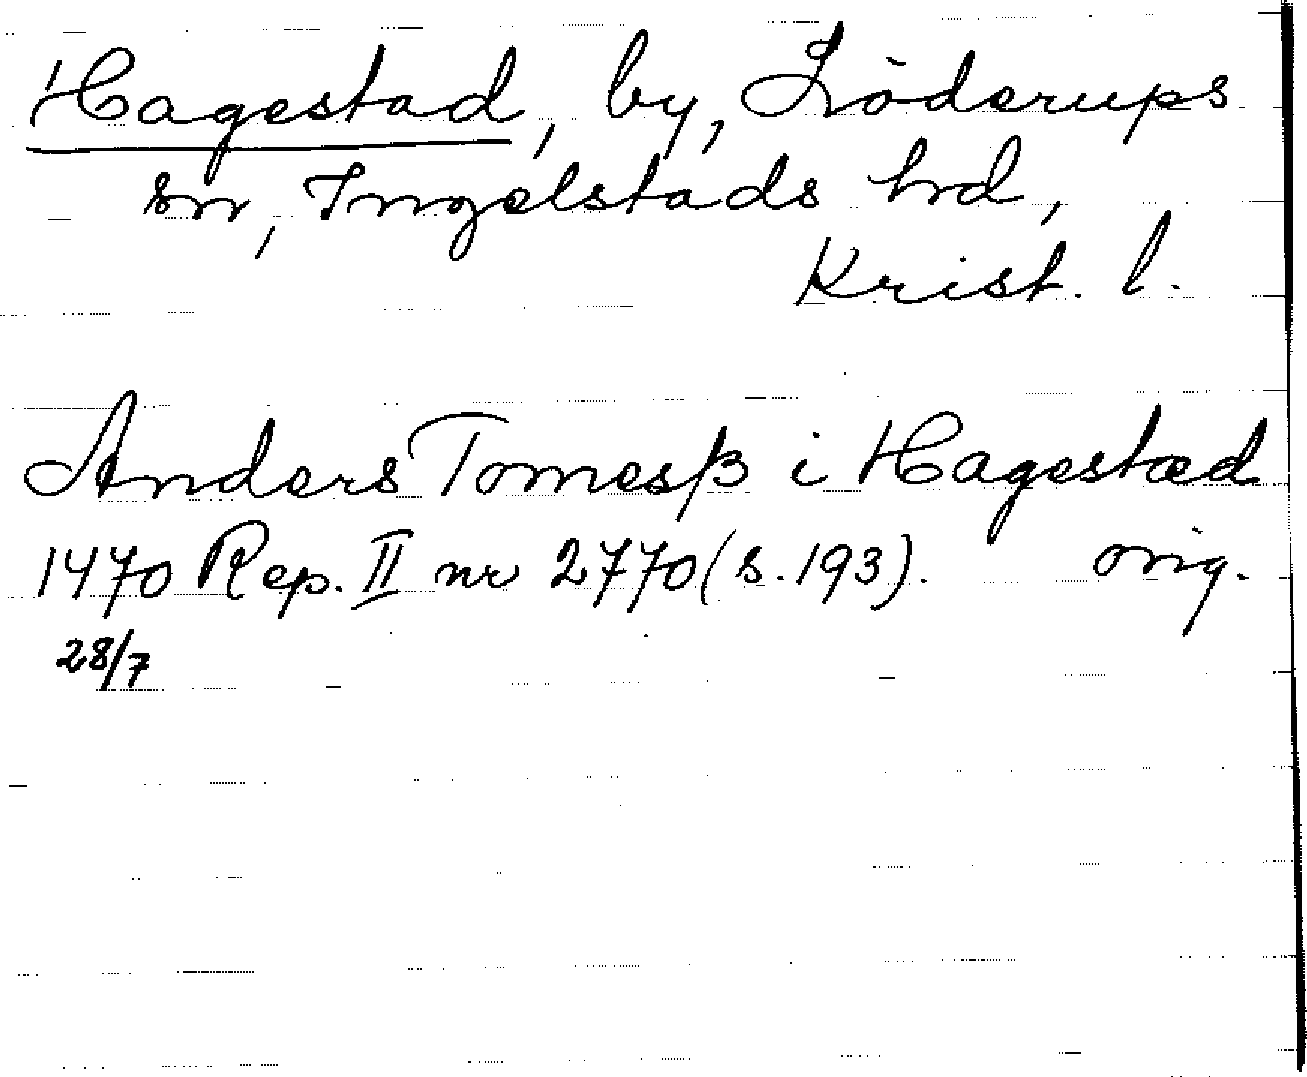 Hagestad, by, Löderups
sn, Ingelstads hd,
Krist. l.
Anders Tomesß i Hagestæd
1470 Rep. II nr 2770 (s. 193). orig.
28/7